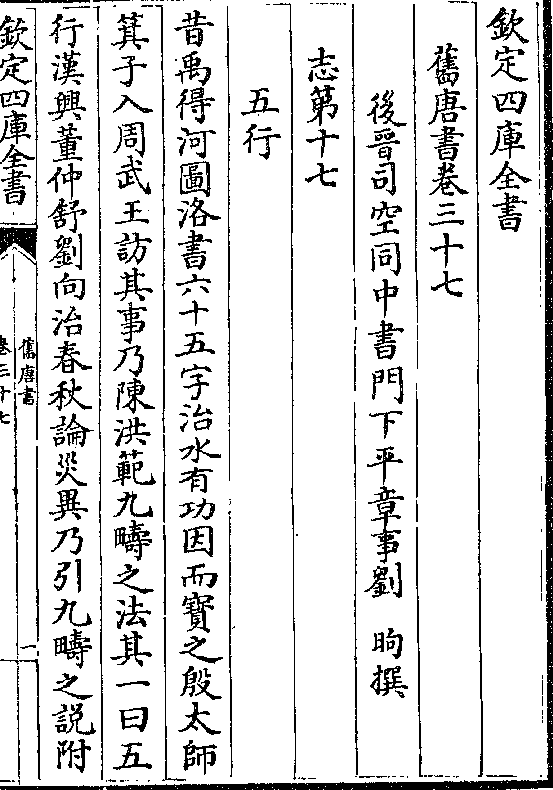 欽定四庫全書
舊唐書卷三十七
後晉司空同中書門下平章事劉 昫撰
志第十七
五行
昔禹得河圖洛書六十五字治水有功因而寶之殷太師
箕子入周武王訪其事乃陳洪範九疇之法其一曰五
行漢興董仲舒劉向治春秋論災異乃引九疇之説附
欽定四庫全書
舊唐書
卷三十七
一